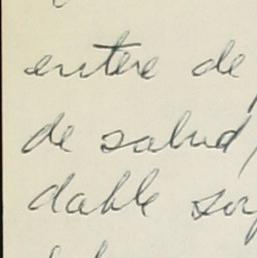 entere de
de salud,
dable sor